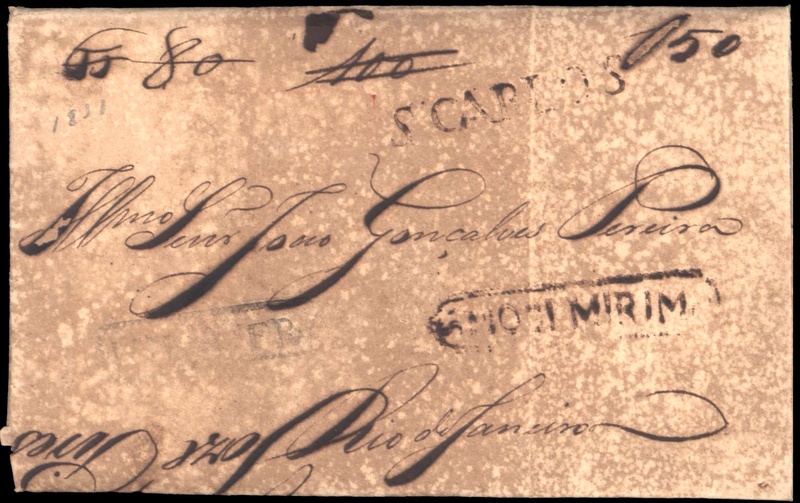 80 400 150
1831
S. CARLOS
Illmo Senr João Gonçalves Pereira
MOGI MIRIM
Rio de Janeiro